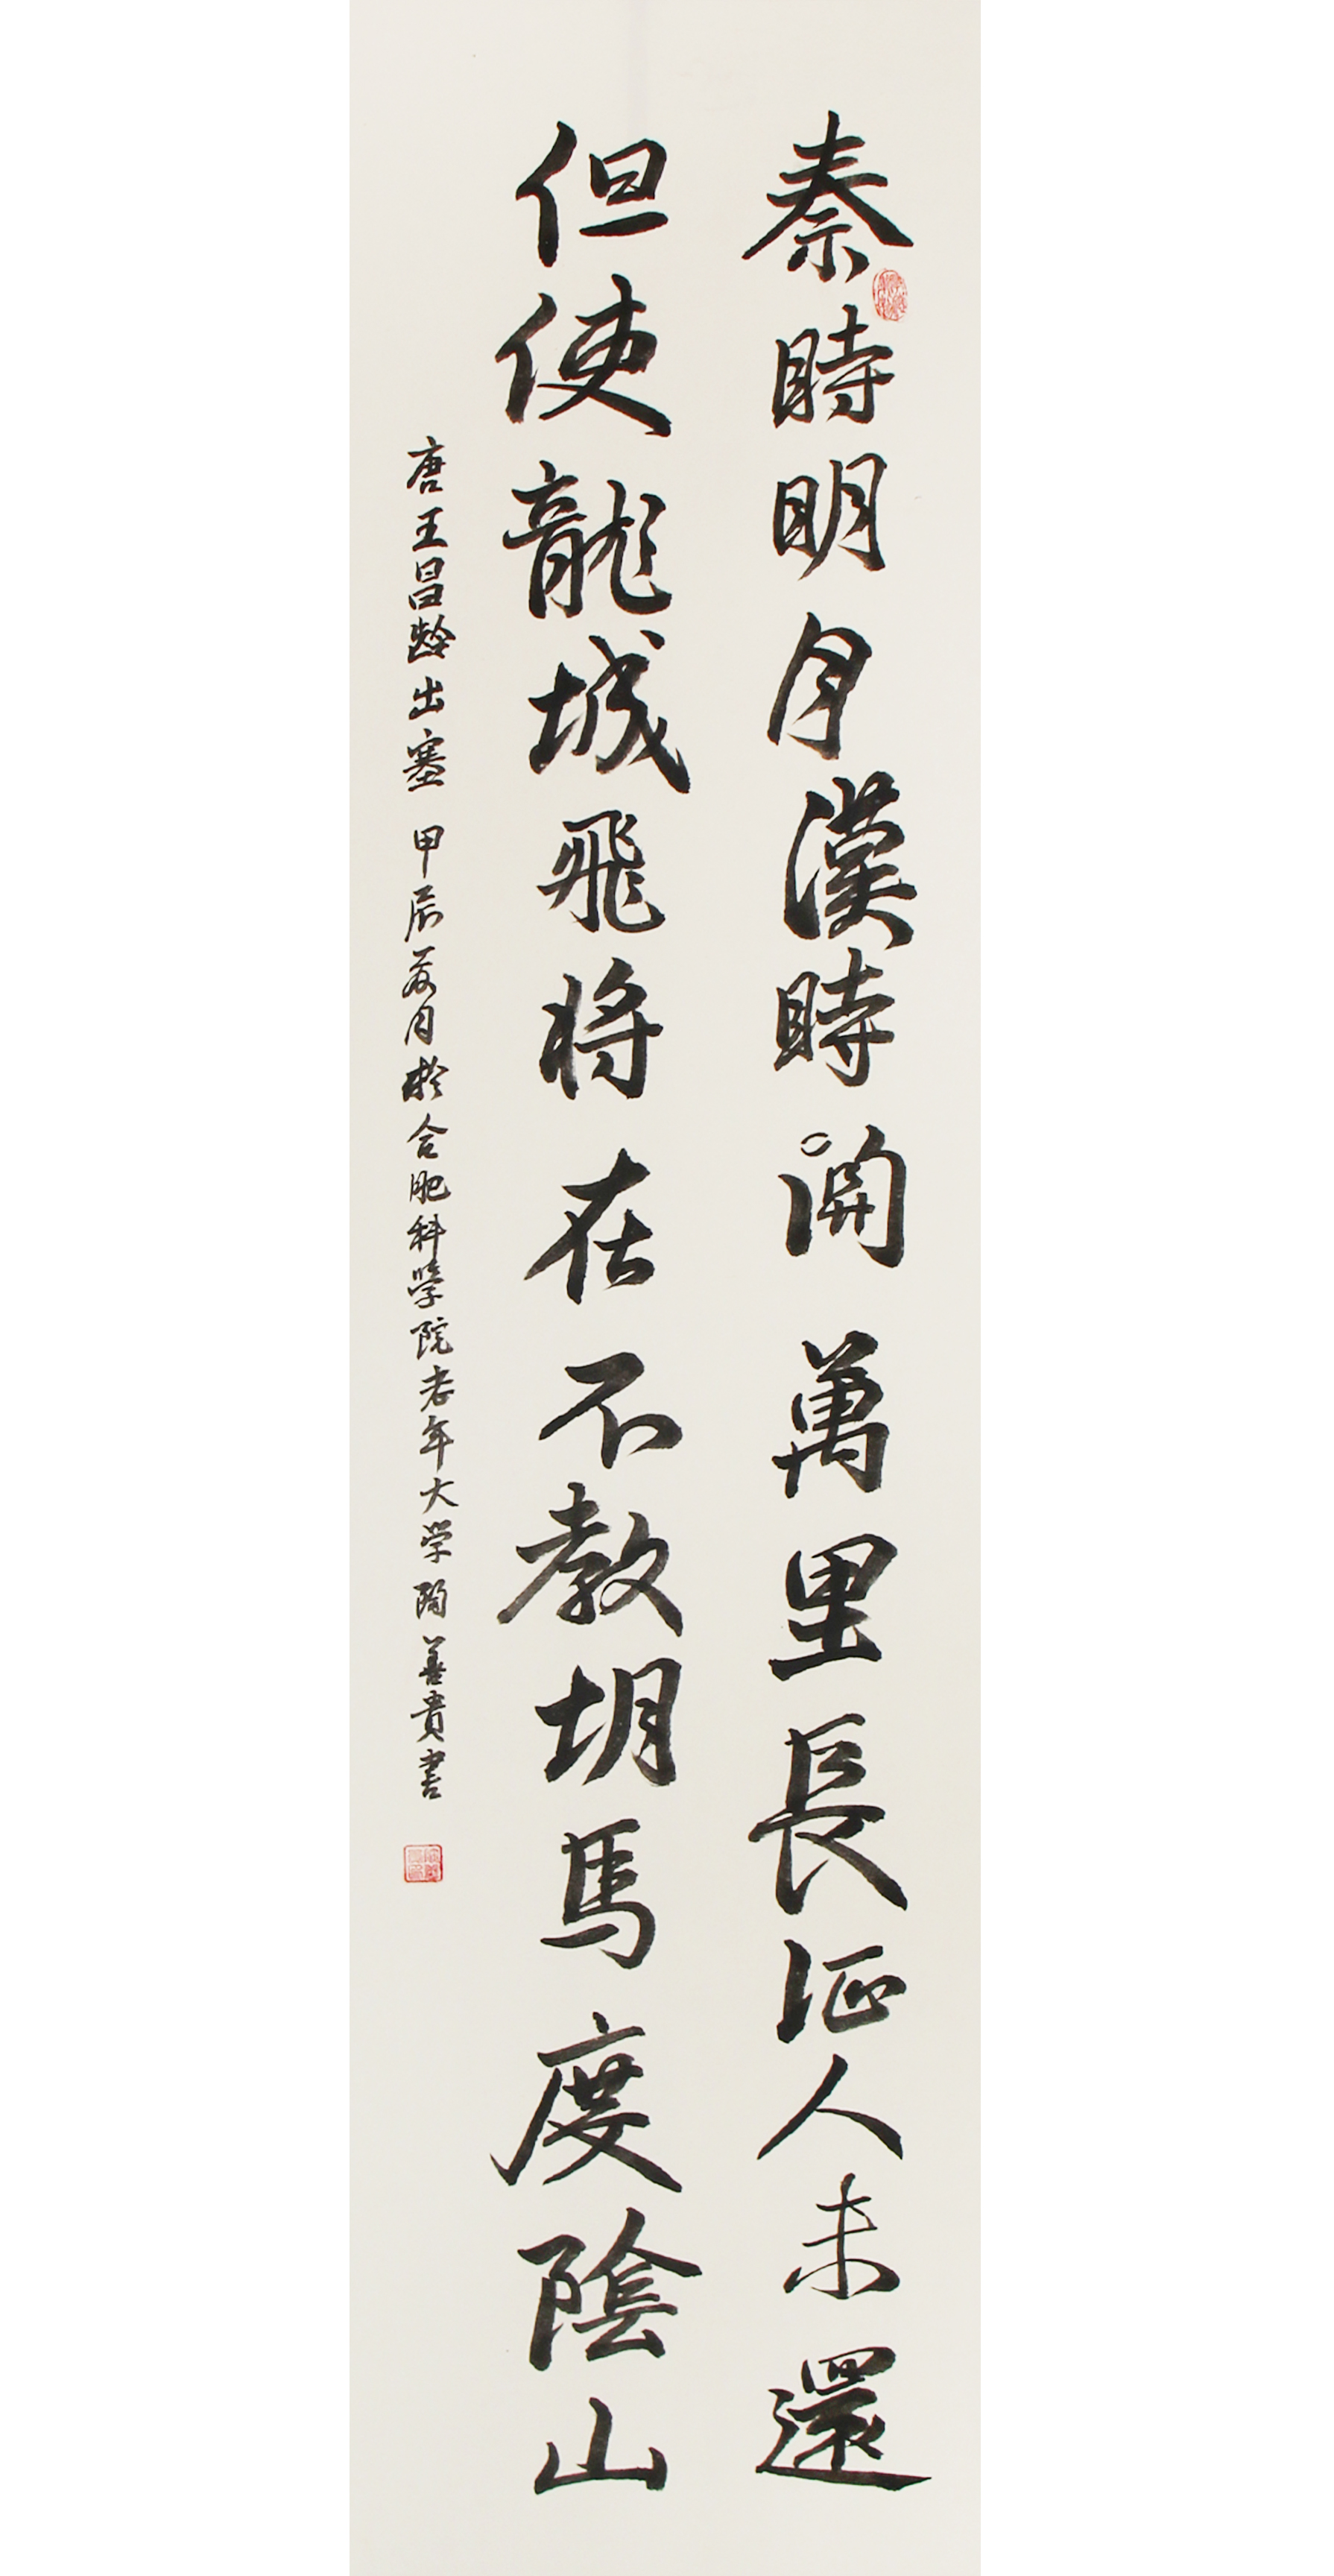 秦時明月漢時關萬里長征人未還
但使龍城飛將在不教胡馬度陰山
唐王昌齡出塞 甲辰荔月於合肥科學院老年大学陶善貴書